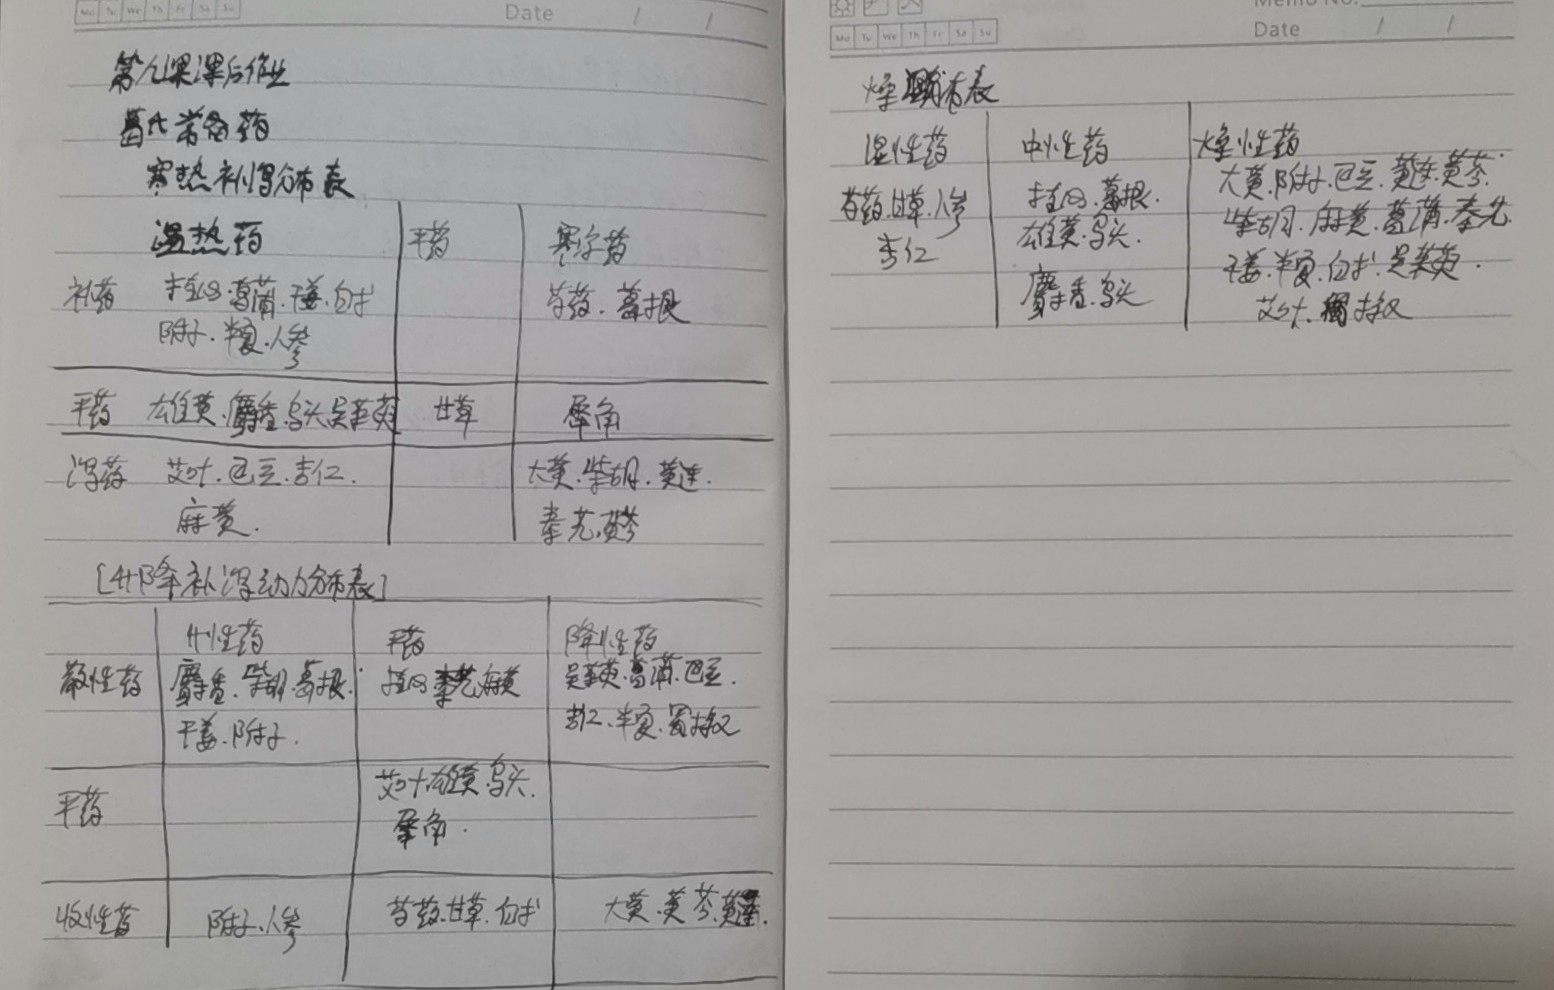 Mo Tu We Th Fr Sa Su
Date / /
第八课课后作业
葛氏常备药
寒热补泻分布表
温热药 平药 寒凉药
补药 桂心·菖蒲·干姜·白朮 芍药·葛根
附子·半夏·人参
平药 雄黄·麝香·乌头吴茱萸 甘草 犀角
泻药 艾叶·巴豆·杏仁· 大黄·柴胡·黄连·
麻黄· 秦艽·黄芩
[升降补泻动力分布表]
升性药 平药 降性药
散性药 麝香·柴胡·葛根· 桂心 秦艽 麻黄 吴茱萸·菖蒲·巴豆·
干姜·附子· 杏仁·半夏·蜀椒
平药 艾叶雄黄·乌头·
犀角·
收性药 附子·人参 芍药·甘草·白朮 大黄·黄芩·黄连·
Memo No.
Mo Tu We Th Fr Sa Su
Date / /
燥湿分布表
湿性药 中性药 燥性药
芍药·甘草·人参 桂心·葛根· 大黄·附子·巴豆·黄连·黄芩·
杏仁 雄黄·乌头· 柴胡·麻黄·菖蒲·秦艽
麝香·乌头 干姜·半夏·白朮·吴茱萸·
艾叶·蜀椒